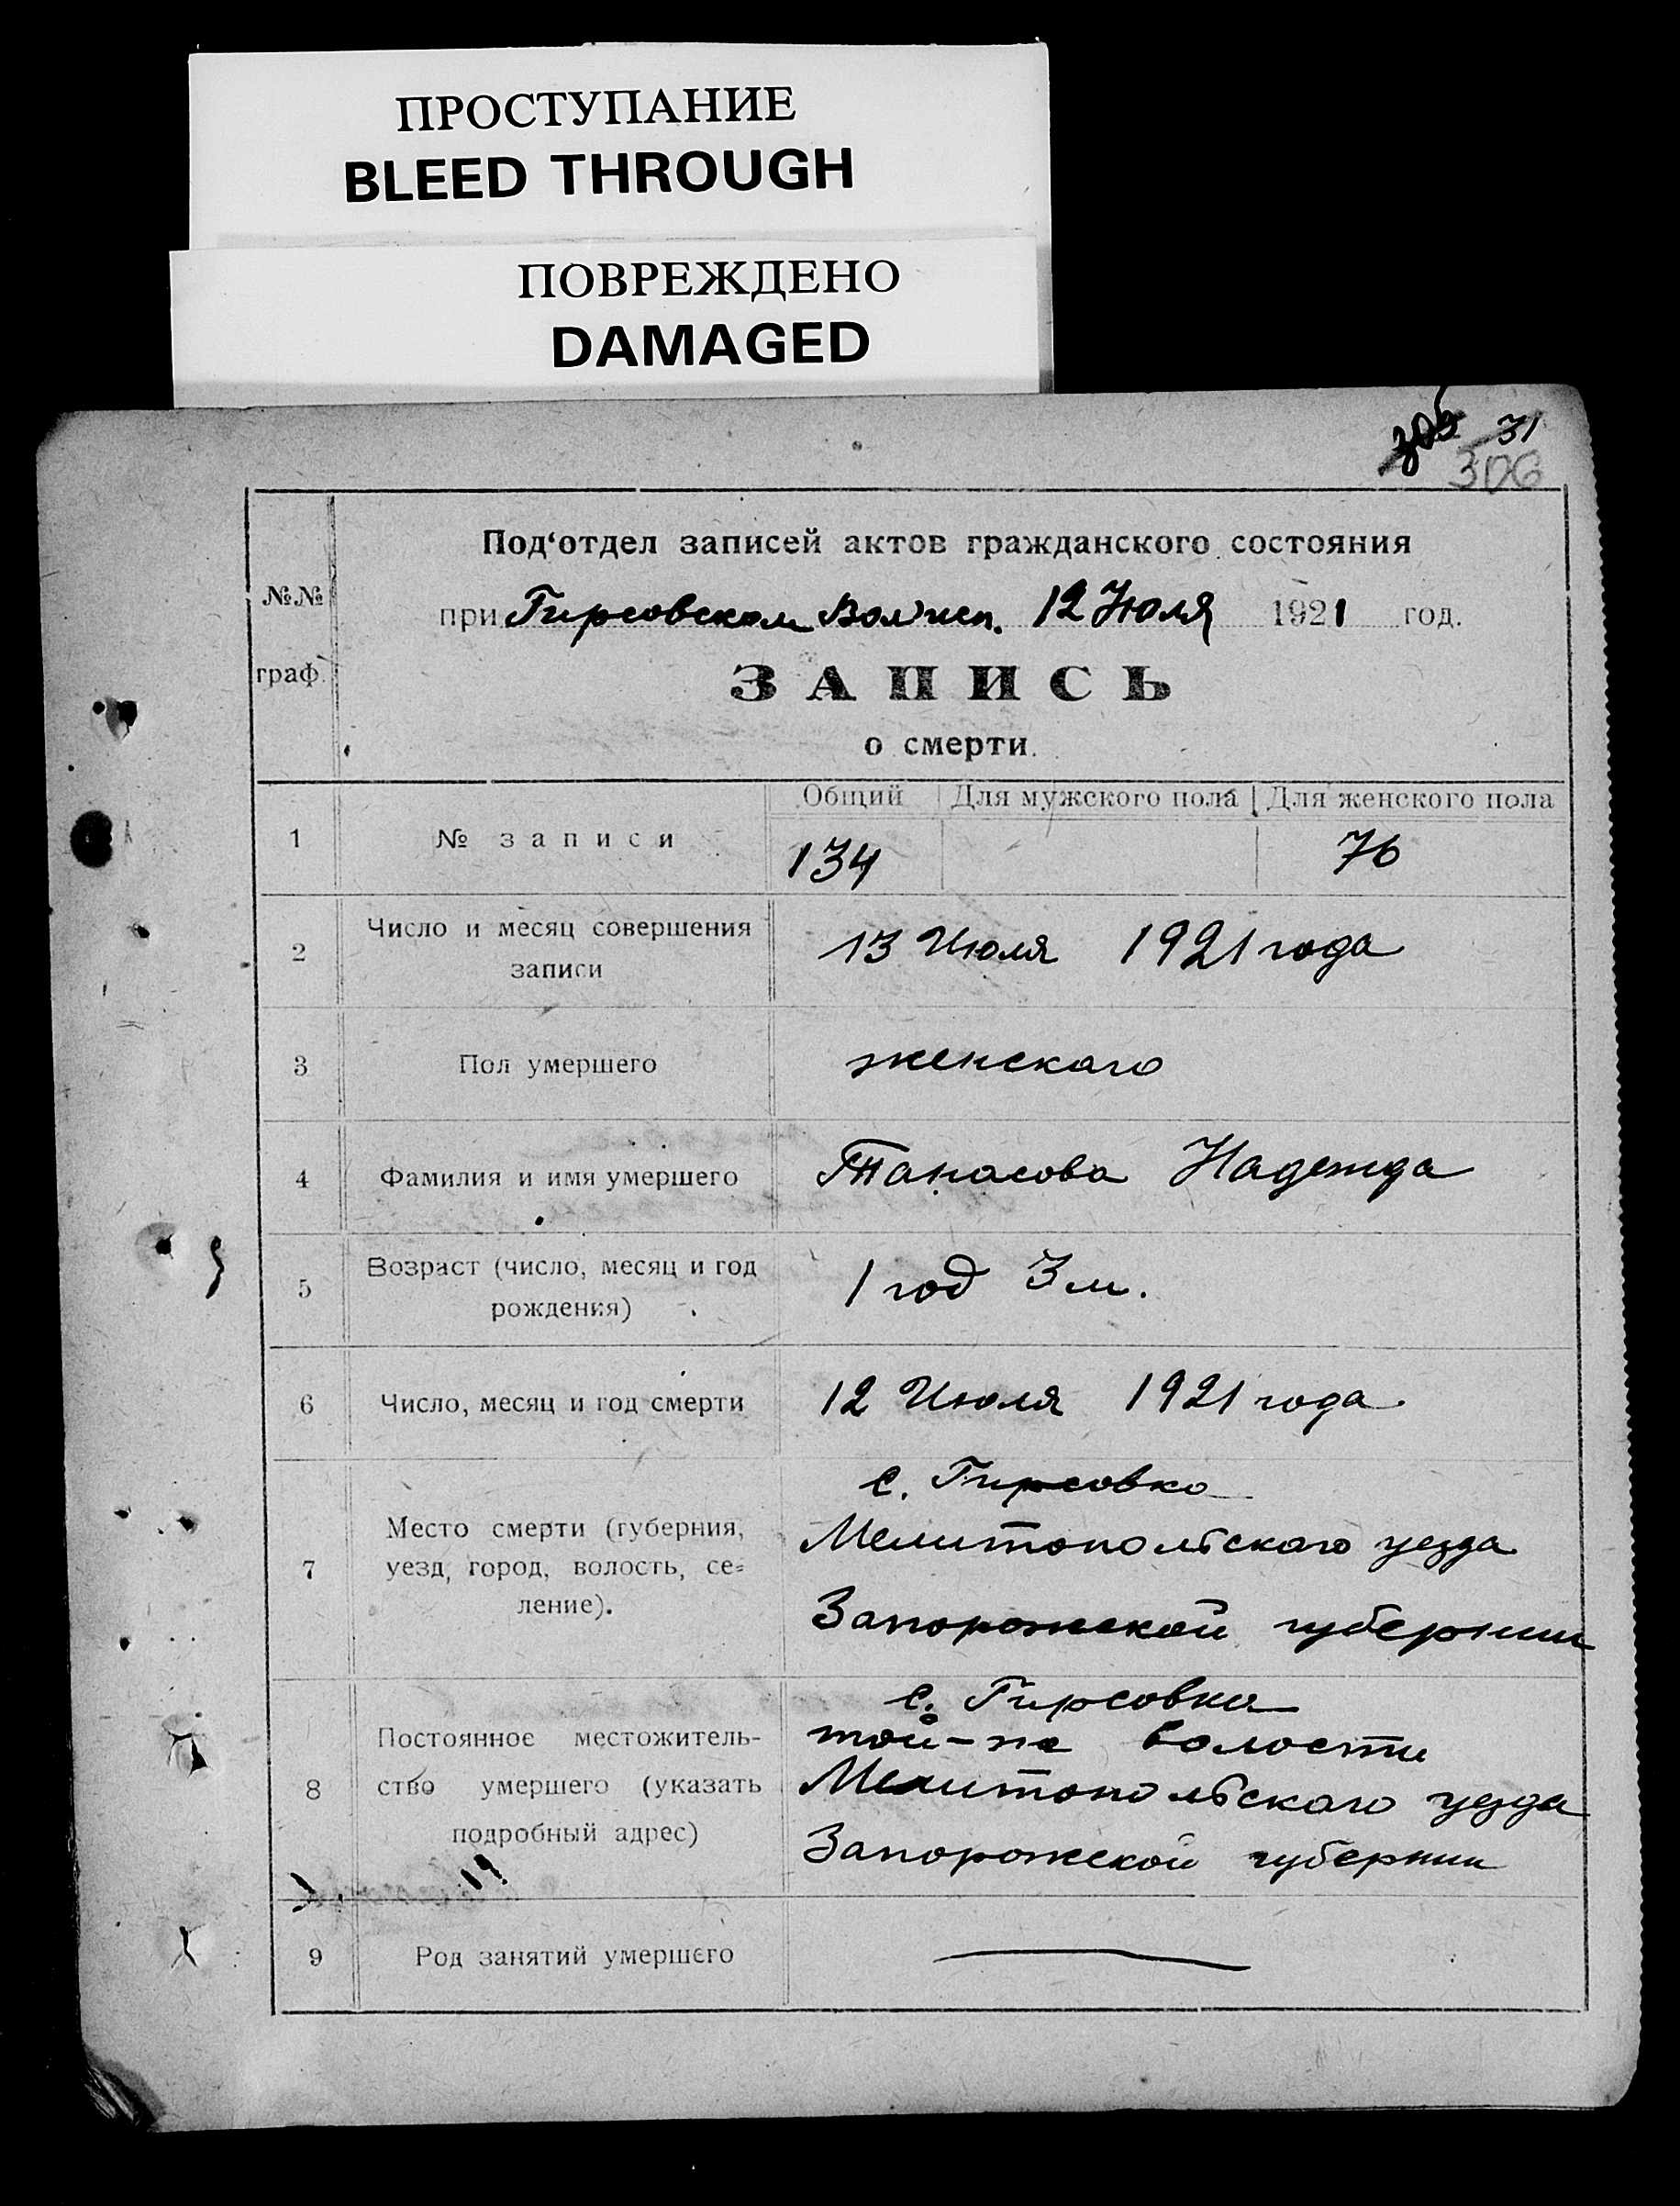 ПРОСТУПАНИЕ
BLEED THROUGH
ПОВРЕЖДЕНО
DAMAGED
306 31
306
Под‘отдел записей актов гражданского состояния
№№ граф.
при Гирсовском Волисп. 12 Июля 1921 год.
ЗАПИСЬ
о смерти.
Общий Для мужского пола Для женского пола
1 № записи 134 76
2 Число и месяц совершения записи 13 Июля 1921 года
3 Пол умершего женскаго
4 Фамилия и имя умершего Танасова Надежда
5 Возраст (число, месяц и год рождения) 1 год 3 м.
6 Число, месяц и год смерти 12 Июля 1921 года
с. Гирсовка
7 Место смерти (губерния, уезд, город, волость, се-ление). Мелитопольскаго уезда
Запорожской губернии
с. Гирсовка
той-же волости
8 Постоянное местожитель-ство умершего (указать подробный адрес) Мелитопольскаго уезда
Запорожской губернии
19
9 Род занятий умершего